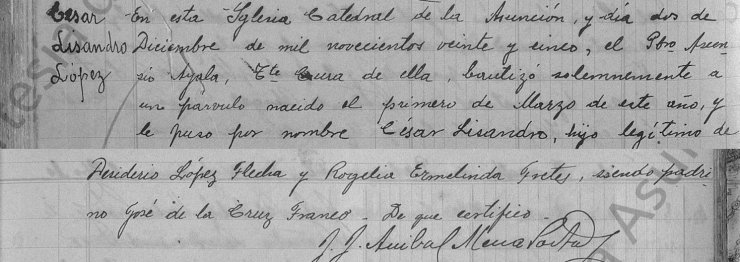 Cesar Lisandro López
En esta Iglesia Catedral de la Asunción, y día dos de
Diciembre de mil novecientos veinte y cinco, el Pbro Asen
sio Ayala, Tte Cura de ella, bautizó solemnemente a
un parvulo nacido el primero de Marzo de este año, y
le puso por nombre César Lisandro, hijo legítimo de
Desiderio López Flecha y Rogelia Ermelinda Fretes, siendo padri
no José de la Cruz Franco. De que certifico.
J. J. Anibal Mena Porta